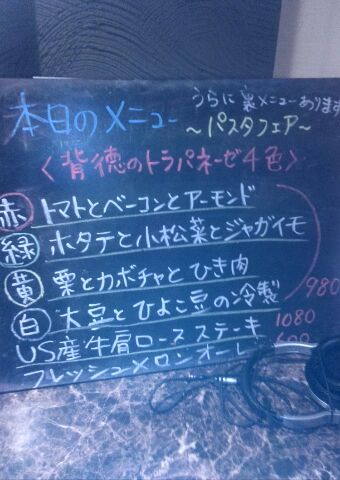 本日のメニュー
うらに裏メニューあります
～パスタフェア～
＜背徳のトラパネーゼ4色＞
赤 トマトとベーコンとアーモンド
緑 ホタテと小松菜とジャガイモ
黄 栗とカボチャとひき肉
980
白 大豆とひよこ豆の冷製
US産牛肩ロースステーキ 1080
フレッシュメロンオーレ 600